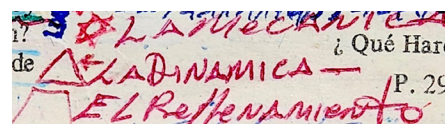 LA MECÁNICA
n?
¿ Qué Hare
de
LA DINAMICA —
P. 29
EL Reffenamiento